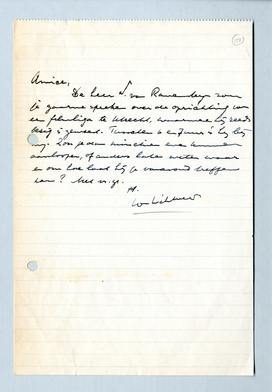 Amice,
De heer J. van Ravesteyn zou
je gaarne spreken over de oprichting van
een filmliga te Utrecht, waarmee hij reeds
bezig is geweest. Tusschen 6 en 7 uur is hij bij
mij. Zou je dan misschien even kunnen
aanloopen, of anders laten weten waar
en om hoe laat hij je vanavond treffen
kan? Met vr. gr.